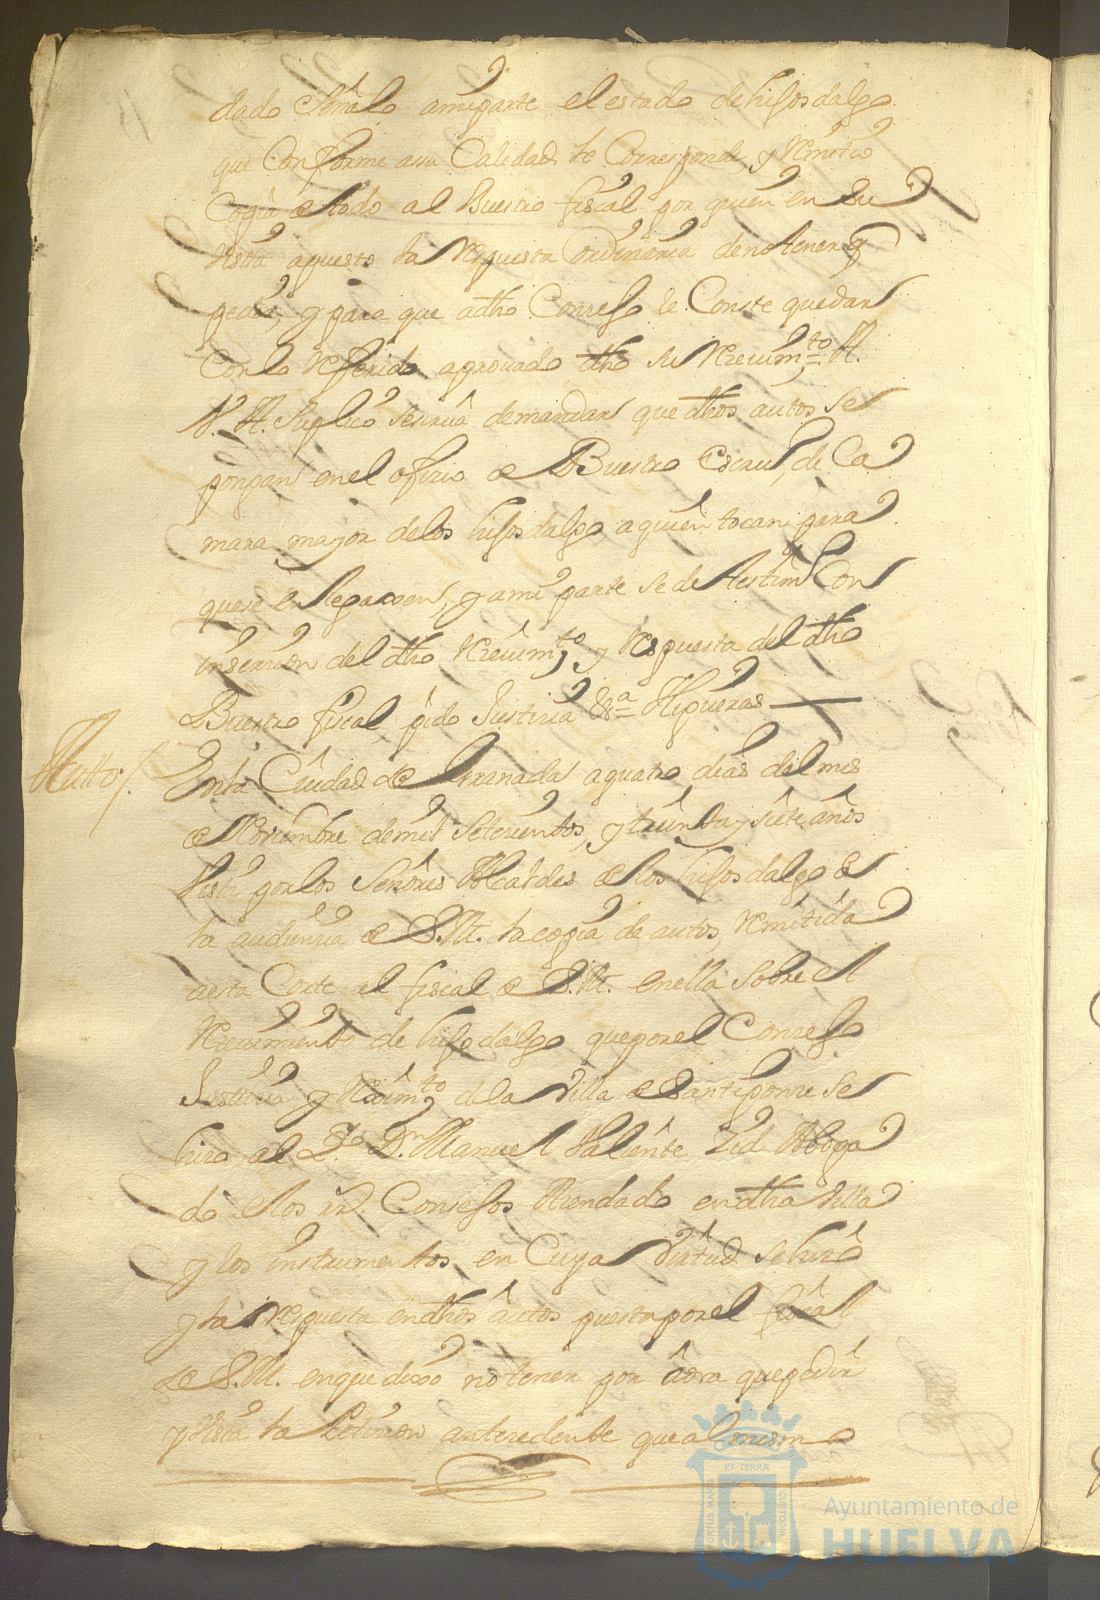 dado señalo amiparte el estado dehijosdalgo
que Conforme asu Calidad le Corresponde, y Remitio
Copia de todo al Buestro fiscal por quien en su
Vista apuesto la Respuesta Ordinaria denotener q
pedir, y para que adho Consejo le Conste quedar
Conlo Referido aprouado dho su Reciuimto A
V. A. Suplico sesirua demandar que dhos autos se
pongan enel ofizio de Buestro Escriu de Ca
mara mayor delos hijosdalgo, aquien tocan, para
quese enlegaxen, y ami parte se de testim Con
inserzion del dho Reciuimto y Respuesta del dho
Buestro fiscal, pido Justicia &a Higueras
Autto /.
Enla Ciudad de Granada aquatro dias del mes
de Noviembre demil setezientos, y treinta y siete años
Vista porlos Señores Alcaldes delos hijosdalgo de
la audienzia de S.M. la copia de autos, Remitida
aesta Corte al fiscal de S.M. enella sobre el
Reciuimiento de hijodalgo queporel Consejo
Justicia y Reximto dela Villa de Santiponze se
hizo al Ldo Dn Manuel Valiente Zid Aboga
do delos Rs. Consejos Vezindado endha Villa
y los instrumentos en Cuya Virtud sehizo
y la Respuesta endhos autos puesta por el fiscal
de S.M. enque dixo no tener por aora quepedir
y Vista la Petizion antezedente que al mismo
Ayuntamiento de
HUELVA